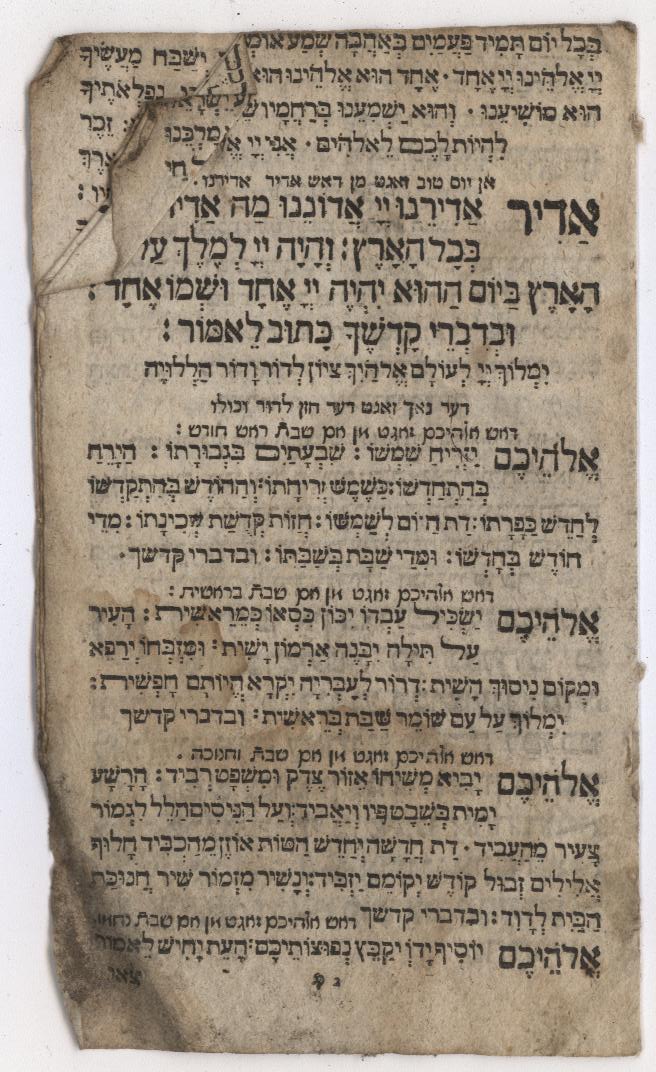 בְּכָל יוֹם תָּמִיד פַּעֲמַיִם בְּאַהֲבָה שְׁמַע אוֹמְ
יְיָ אֱלֹהֵינוּ יְיָ אֶחָד · אֶחָד הוּא אֱלֹהֵינוּ הוּא
הוּא מוֹשִׁיעֵנוּ · וְהוּא יַשְׁמִעֵנוּ בְּרַחֲמָיו
לִהְיוֹת לָכֶם לֵאלֹהִים · אֲנִי יְיָ
יְשַׁבַּח מַעֲשֶׂיךָ
נִפְלְאֹתֶיךָ
זֵכֶר
מַלְכֵּנוּ
אן יום טוב זאגט מן דאש אדיר אדירנו ·
אַדִּיר אַדִּירֵנוּ יְיָ אֲדוֹנֵנוּ מָה אַדִּיר
בְּכָל הָאָרֶץ : וְהָיָה יְיָ לְמֶלֶךְ עַל
הָאָרֶץ בַּיּוֹם הַהוּא יִהְיֶה יְיָ אֶחָד וּשְׁמוֹ אֶחָד :
וּבְדִבְרֵי קָדְשֶׁךָ כָּתוּב לֵאמוֹר :
יִמְלוֹךְ יְיָ לְעוֹלָם אֱלֹהַיִךְ צִיּוֹן לְדוֹר וָדוֹר הַלְלוּיָהּ
דער נאך זאגט דער חזן לדור וכולו
דאש אלהיכם זאגט אן אם שבת ראש חודש :
אֱלֹהֵיכֶם יַזְרִיחַ שִׁמְשׁוֹ : שִׁבְעָתַיִם בִּגְבוּרָתוֹ : הַיָּרֵחַ
בְּהִתְחַדְּשׁוֹ : כַּשֶּׁמֶשׁ זְרִיחָתוֹ : וְהַחוֹדֶשׁ בְּהִתְקַדְּשׁוֹ
לְחַדֵּשׁ כַּפָּרָתוֹ : דַּת הַיּוֹם לְשַׁמְּשׁוֹ : חֲזוֹת קְדֻשַּׁת שְׁכִינָתוֹ : מִדֵּי
חוֹדֶשׁ בְּחָדְשׁוֹ : וּמִדֵּי שַׁבָּת בְּשַׁבַּתּוֹ : ובדברי קדשך ·
דאש אלהיכם זאגט אן אם שבת בראשית :
אֱלֹהֵיכֶם יַשְׂכִּיל עַבְדּוֹ יִכּוֹן כִּסְאוֹ כְּמֵרֵאשִׁית : הָעִיר
עַל תִּילָהּ יִבָּנֶה אַרְמוֹן יָשִׁית : וּמִזְבְּחוֹ יְרַפֵּא
וּמְקוֹם נִיסוּךְ הַשִּׁית : דְּרוֹר לְעִבְרִיָּה יִקְרָא הֱיוֹתָם חָפְשִׁית :
יִמְלוֹךְ עַל עַם שׁוֹמֵר שַׁבַּת בְּרֵאשִׁית : ובדברי קדשך
דאש אלהיכם זאגט אן אם שבת וחנוכה ·
אֱלֹהֵיכֶם יָבִיא מְשִׁיחוֹ אֵזוֹר צֶדֶק וּמִשְׁפָּט רְבִיד : הָרָשָׁע
יָמִית בְּשֵׁבֶט פִּיו וְיַאֲבִיד : וְעַל הַנִּיסִים הַלֵּל לִגְמוֹר
צָעִיר מֵהַעֲבִיד · דַּת חֲדָשָׁה יְחַדֵּשׁ הַטּוֹת אוֹזֶן מֵהַכְבִּיד חִלּוּף
אֱלִילִים זְבוּל קוֹדֶשׁ יְקוֹמֵם יַזְבִּיד : וְנָשִׁיר מִזְמוֹר שִׁיר חֲנוּכַּת
הַבַּיִת לְדָוִד : ובדברי קדשך דאש אלהיכם זאגט אן אם שבת
אֱלֹהֵיכֶם יוֹסִיף יָדוֹ יְקַבֵּץ נְפוּצוֹתֵיכֶם : הָעֵת יָחִישׁ לֵאמוֹר
צאו